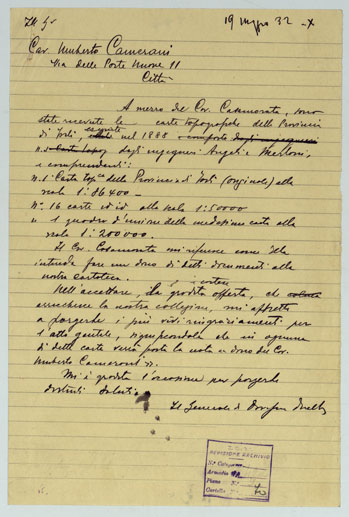 19 32 - X
Cav. Umberto Camerani
Via delle Porte Nuove 11
Città
A mezzo del Cav. Casamorata, sono
state ricevute le carte topografiche della Provincia
di Forlì, eseguite nel 1888
dagli ingegneri Angeli e Merloni,
e comprendenti:
n. 1 Carta topca della Provincia di Forlì (originale) alla
scala 1:86400
N: 16 carte id id alla scala 1:50000
" 1 quadro d'unione della medesima carta alla
scala 1:200.000.
Il Cav. Casamorata mi riferisce come Ella
intenda fare un dono di detti documenti alla
nostra cartoteca.
Nell'accettare, la gradita offerta, che
arricchisce la nostra collezione, mi affretto
a porgerle i più vivi ringraziamenti per
l'atto gentile, significandole che in ognuna
di dette carte verrà posta la nota "dono del Cav.
Umberto Camerani".
Mi è gradita l'occasione per porgerle
distinti saluti
Il Generale di
REVISIONE ARCHIVIO
N.° Categoria
Armadio
Piano N.°
Cartella